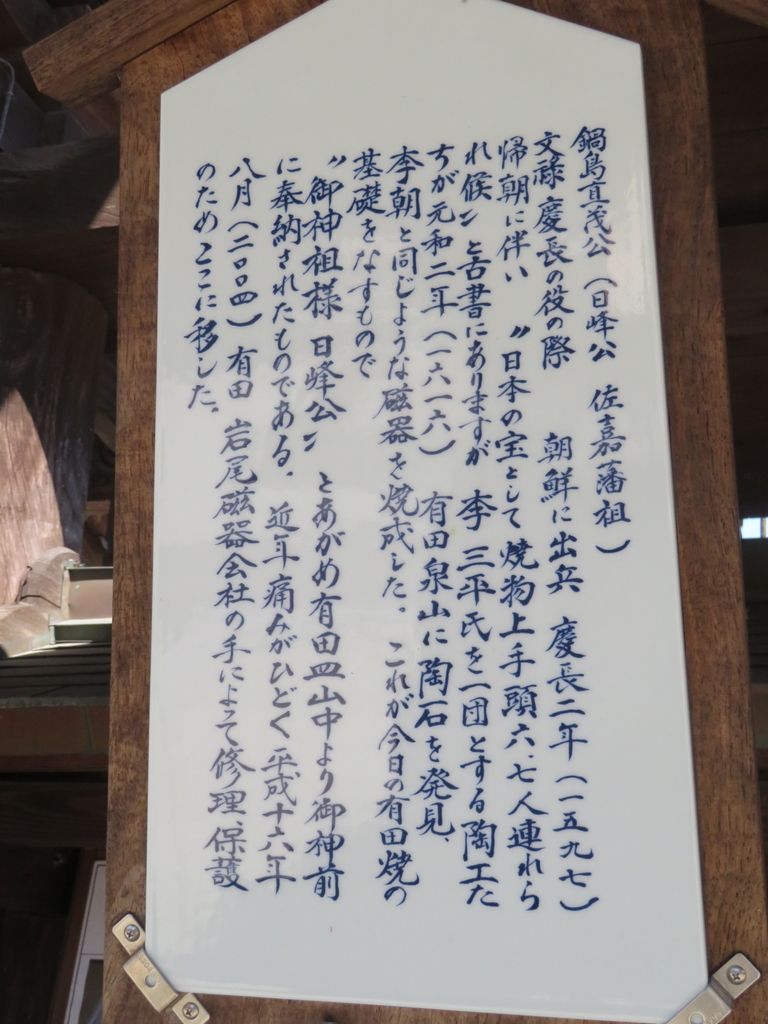 鍋島直茂公（日峰公　佐嘉藩祖）
文禄慶長の役の際　朝鮮に出兵　慶長二年（一五九七）
帰朝に伴い　〃日本の宝として焼物上手頭六、七人連れら
れ候〃と古書にありますが　李　三平氏を一団とする陶工た
ちが元和二年（一六一六）　有田泉山に陶石を発見、
李朝と同じような磁器を焼成した。これが今日の有田焼の
基礎をなすもので
〃御神祖様　日峰公〃　とあがめ有田皿山中より御神前
に奉納されたものである。近年痛みがひどく平成十六年
八月（二〇〇四）有田　岩尾磁器会社の手によって修理、保護
のためここに移した。